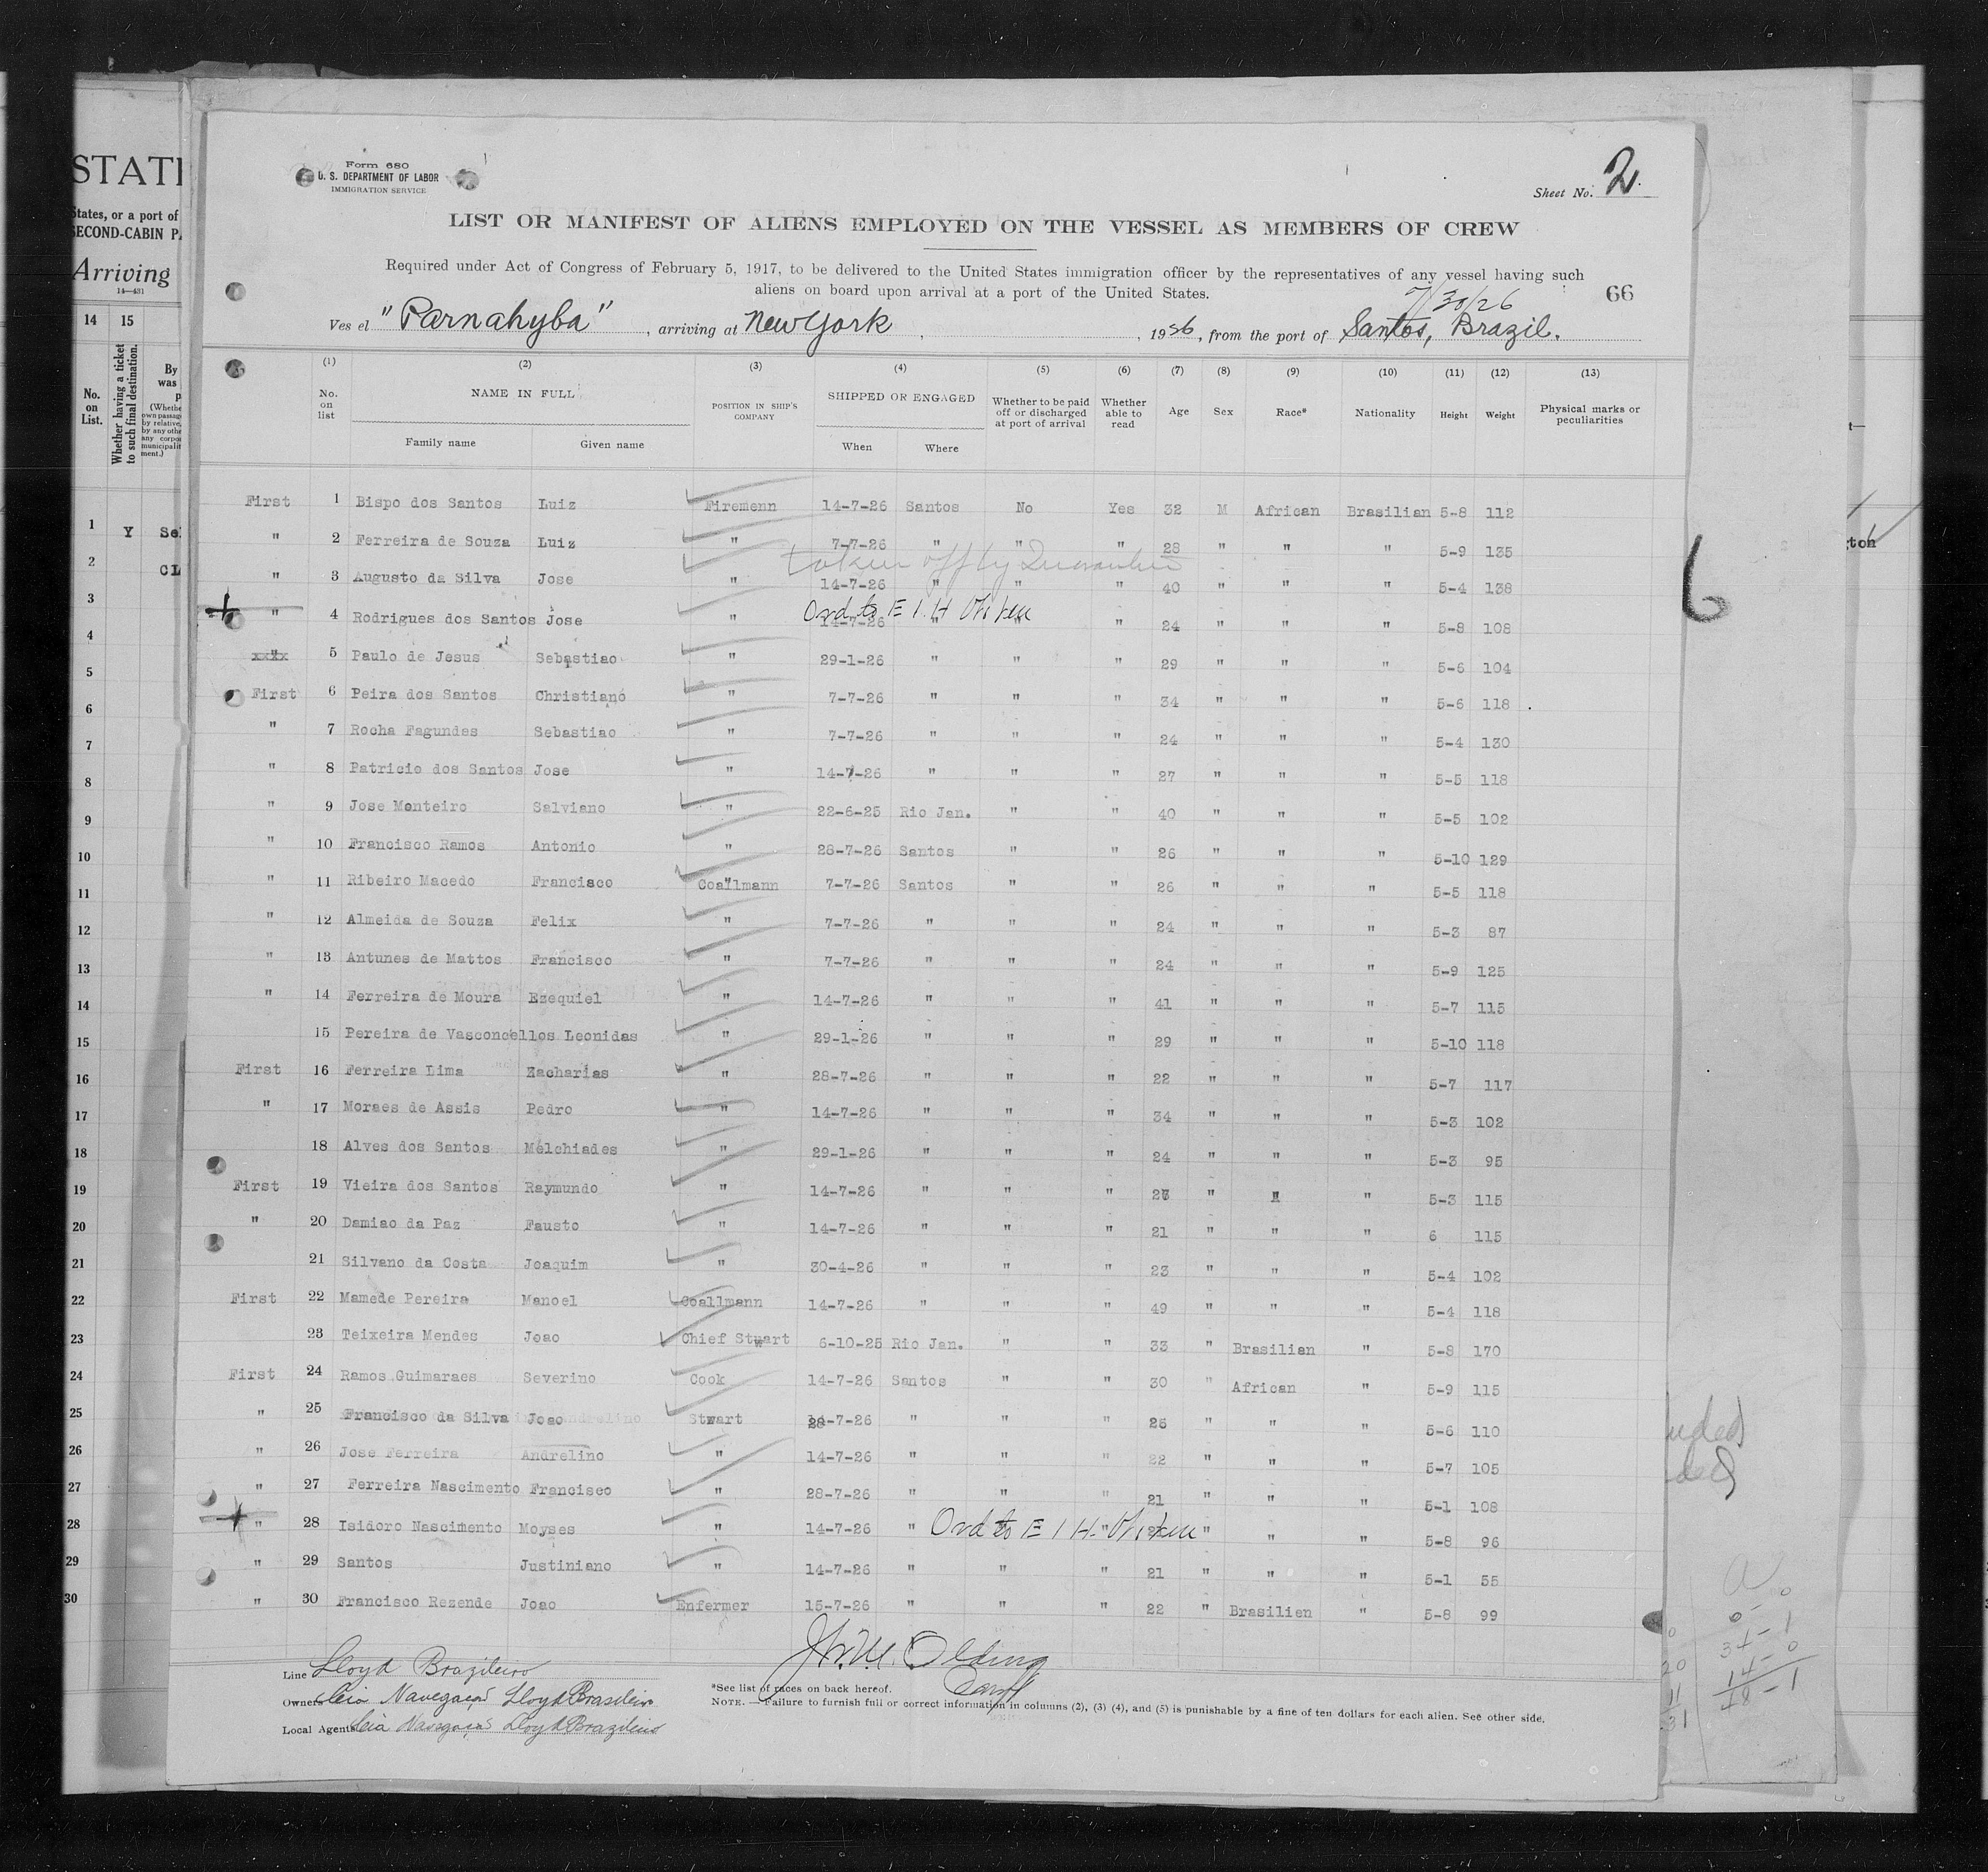 Form 680
U. S. DEPARTMENT OF LABOR
IMMIGRATION SERVICE
Sheet No. 2
LIST OR MANIFEST OF ALIENS EMPLOYED ON THE VESSEL AS MEMBERS OF CREW
Required under Act of Congress of February 5, 1917, to be delivered to the United States immigration officer by the representatives of any vessel having such
aliens on board upon arrival at a port of the United States.
66
7/30/26
Ves el "Parnahyba", arriving at New York, , 1926, from the port of Santos, Brazil.
(1) (2) (3) (4) (5) (6) (7) (8) (9) (10) (11) (12) (13)
No. on list NAME IN FULL Family name Given name POSITION IN SHIP'S COMPANY SHIPPED OR ENGAGED When Where Whether to be paid off or discharged at port of arrival Whether able to read Age Sex Race* Nationality Height Weight Physical marks or peculiarities
First 1 Bispo dos Santos Luiz Firemenn 14-7-26 Santos No Yes 32 M African Brasilian 5-8 112
" 2 Ferreira de Souza Luiz " 7-7-26 " " " 28 " " " 5-9 135
taken off by
" 3 Augusto da Silva Jose " 14-7-26 " " " 40 " " " 5-4 138
Ord to E I H
" 4 Rodrigues dos Santos Jose " 14-7-26 " " " 24 " " " 5-8 108
5 Paulo de Jesus Sebastiao " 29-1-26 " " " 29 " " " 5-6 104
First 6 Peira dos Santos Christiano " 7-7-26 " " " 34 " " " 5-6 118
" 7 Rocha Fagundes Sebastiao " 7-7-26 " " " 24 " " " 5-4 130
" 8 Patricio dos Santos Jose " 14-7-26 " " " 27 " " " 5-5 118
" 9 Jose Monteiro Salviano " 22-6-25 Rio Jan. " " 40 " " " 5-5 102
" 10 Francisco Ramos Antonio " 28-7-26 Santos " " 26 " " " 5-10 129
" 11 Ribeiro Macedo Francisco Coallmann 7-7-26 Santos " " 26 " " " 5-5 118
" 12 Almeida de Souza Felix " 7-7-26 " " " 24 " " " 5-3 87
" 13 Antunes de Mattos Francisco " 7-7-26 " " " 24 " " " 5-9 125
" 14 Ferreira de Moura Ezequiel " 14-7-26 " " " 41 " " " 5-7 115
15 Pereira de Vasconcellos Leonidas " 29-1-26 " " " 29 " " " 5-10 118
First 16 Ferreira Lima Zacharias " 28-7-26 " " " 22 " " " 5-7 117
" 17 Moraes de Assis Pedro " 14-7-26 " " " 34 " " " 5-3 102
18 Alves dos Santos Melchiades " 29-1-26 " " " 24 " " " 5-3 95
First 19 Vieira dos Santos Raymundo " 14-7-26 " " " " " " 5-3 115
" 20 Damiao da Paz Fausto " 14-7-26 " " " 21 " " " 6 115
21 Silvano da Costa Joaquim " 30-4-26 " " " 23 " " " 5-4 102
First 22 Mamede Pereira Manoel Coallmann 14-7-26 " " " 49 " " " 5-4 118
23 Teixeira Mendes Joao Chief Stwart 6-10-25 Rio Jan. " " 33 " Brasilian " 5-8 170
First 24 Ramos Guimaraes Severino Cook 14-7-26 Santos " " 30 " African " 5-9 115
" 25 Francisco da Silva Joao Stwart 28-7-26 " " " 26 " " " 5-6 110
" 26 Jose Ferreira Andrelino " 14-7-26 " " " 22 " " " 5-7 105
" 27 Ferreira Nascimento Francisco " 28-7-26 " " " 21 " " " 5-1 108
" 28 Isidoro Nascimento Moyses " 14-7-26 " Ord to E I H " " " 5-8 96
" 29 Santos Justiniano " 14-7-26 " " " 21 " " " 5-1 55
" 30 Francisco Rezende Joao Enfermer 15-7-26 " " " 22 " Brasilien " 5-8 99
Line Lloyd Brazileiro
Owners Cia Navegação Lloyd Brasileiro
Local Agents Cia Navegação Lloyd Brazileiro
*See list of races on back hereof.
NOTE.—Failure to furnish full or correct information in columns (2), (3) (4), and (5) is punishable by a fine of ten dollars for each alien. See other side.
STATE
States, or a port of
SECOND-CABIN
Arriving
14—431
14 15
No. on List.
Whether having a ticket to such final destination.
By
was
1 Y
2
3
4
5
6
7
8
9
10
11
12
13
14
15
16
17
18
19
20
21
22
23
24
25
26
27
28
29
30
6